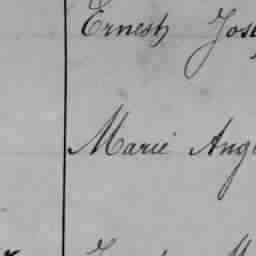 Ernest Jos
Marie Ang